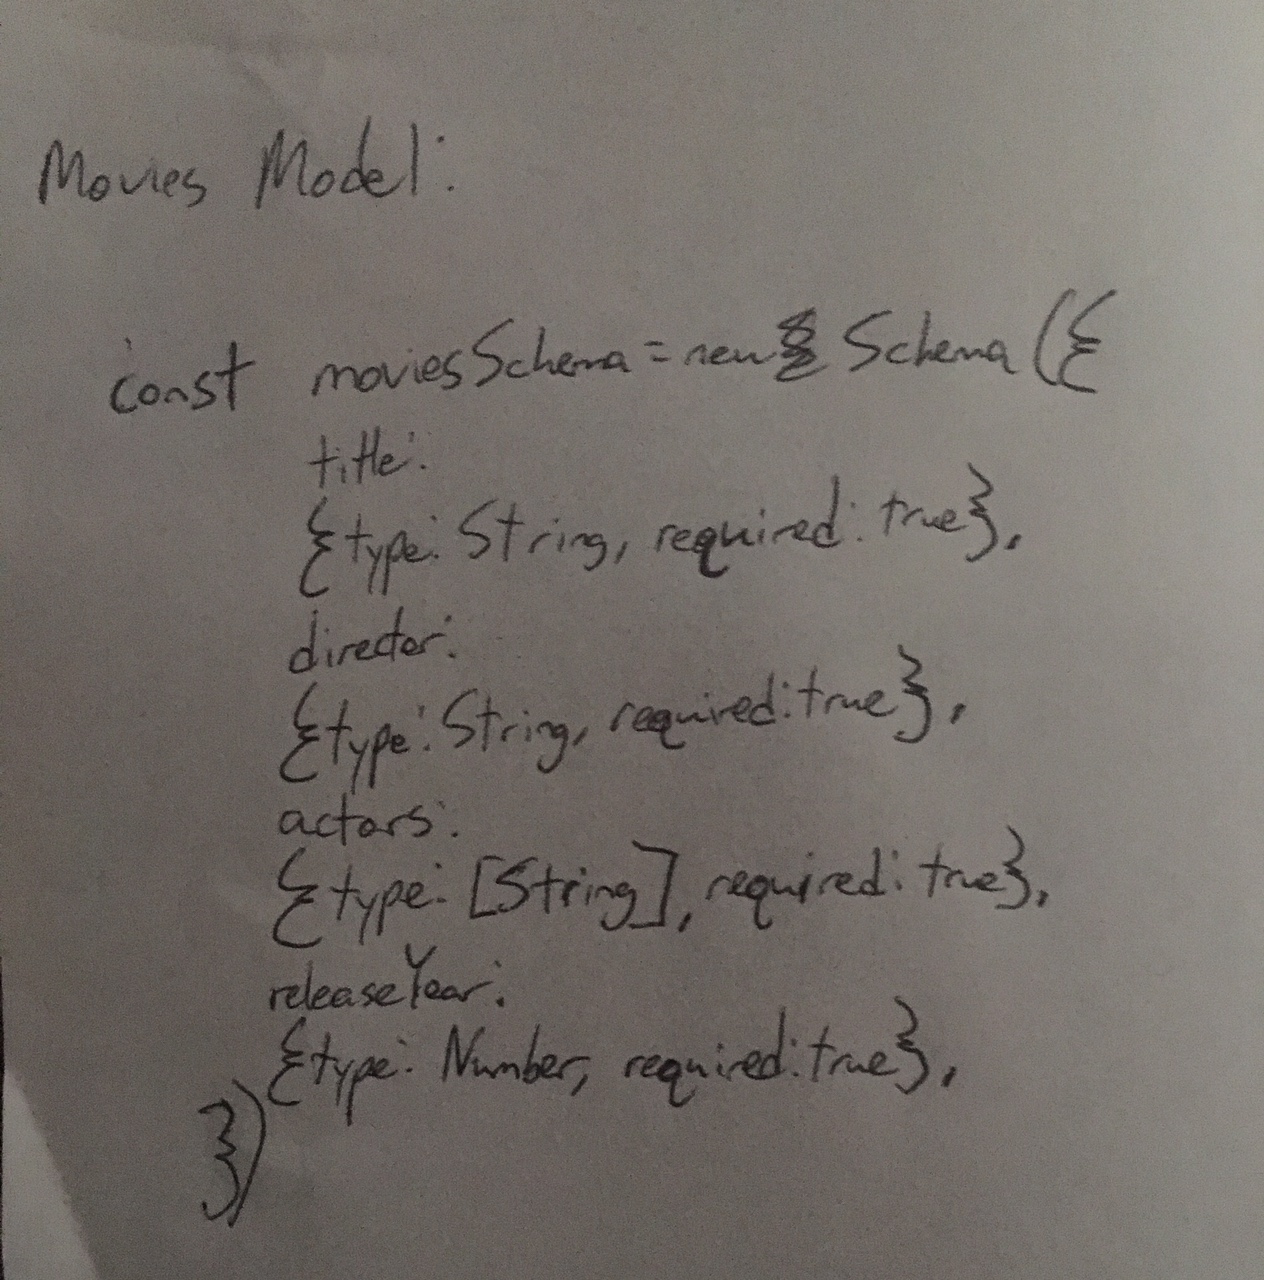 Movies Model:
const moviesSchema = new Schema ({
title:
{type: String, required: true},
director:
{type: String, required: true},
actors:
{type: [String], required: true},
releaseYear:
{type: Number, required: true},
})